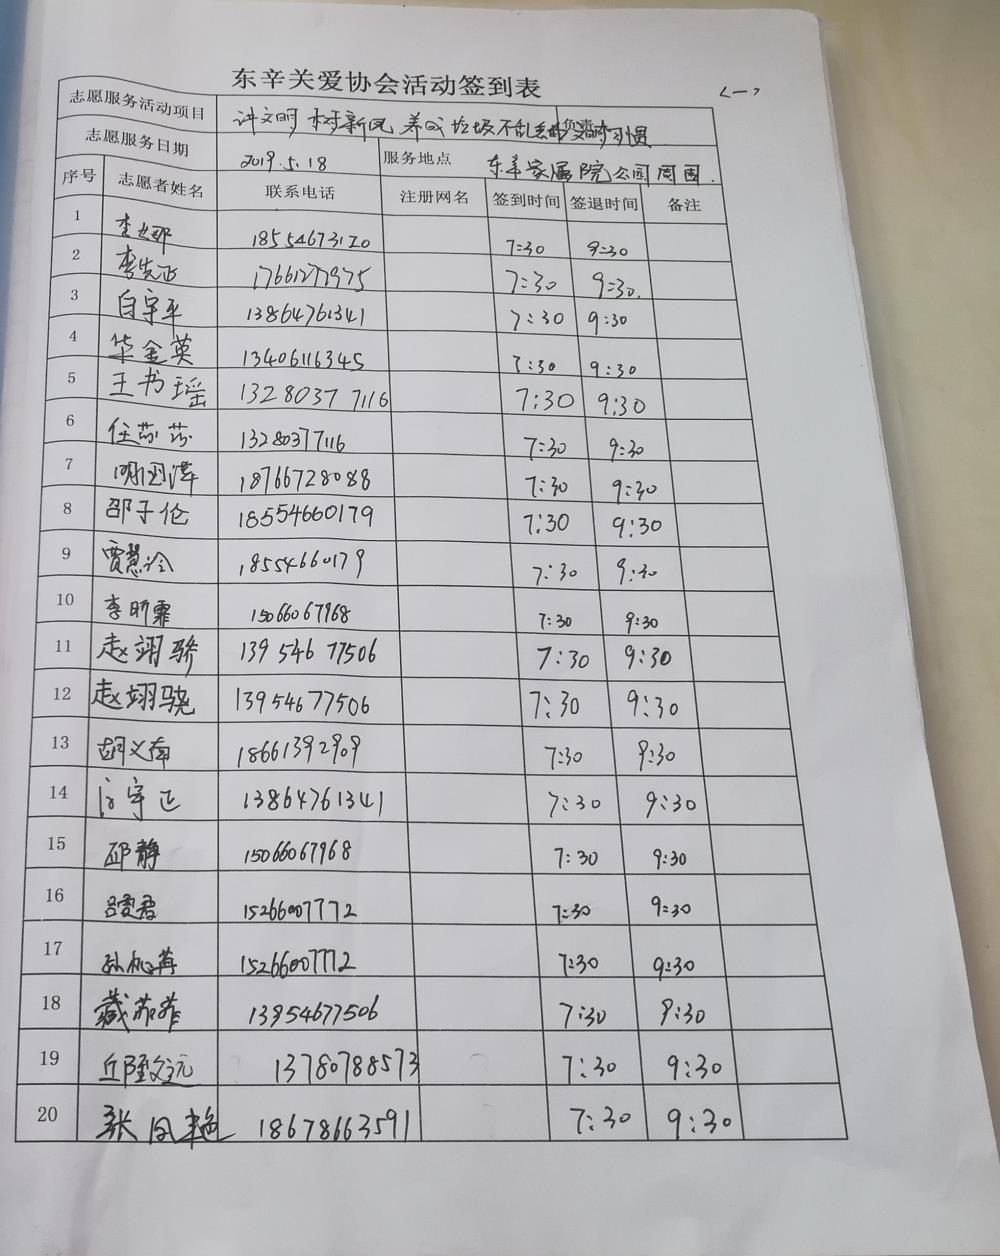 东辛关爱协会活动签到表 <一>
志愿服务活动项目 讲文明 树新风 养成垃圾不乱丢的好习惯
志愿服务日期 2019.5.18 服务地点 东辛家属院公园周围.
序号 志愿者姓名 联系电话 注册网名 签到时间 签退时间 备注
1 18554673120 7:30 9:30
2 李先正 17661277975 7:30 9:30.
3 白宇平 13864761341 7:30 9:30
4 华金英 13406116345 7:30 9:30
5 王书瑶 13280377116 7:30 9:30
6 任莎莎 13280377116 7:30 9:30
7 18766728088 7:30 9:30
8 邵子伦 18554660179 7:30 9:30
9 贾慧冷 18554660179 7:30 9:30
10 李昕霏 15066067968 7:30 9:30
11 赵翊骄 139 546 77506 7:30 9:30
12 赵翊骁 13954677506 7:30 9:30
13 胡义南 18661392909 7:30 9:30
14 宇正 13864761341 7:30 9:30
15 邱静 15066067968 7:30 9:30
16 吕爱君 15266007772 7:30 9:30
17 15266007772 7:30 9:30
18 13954677506 7:30 9:30
19 13780788573 7:30 9:30
20 张凤艳 18678663591 7:30 9:30